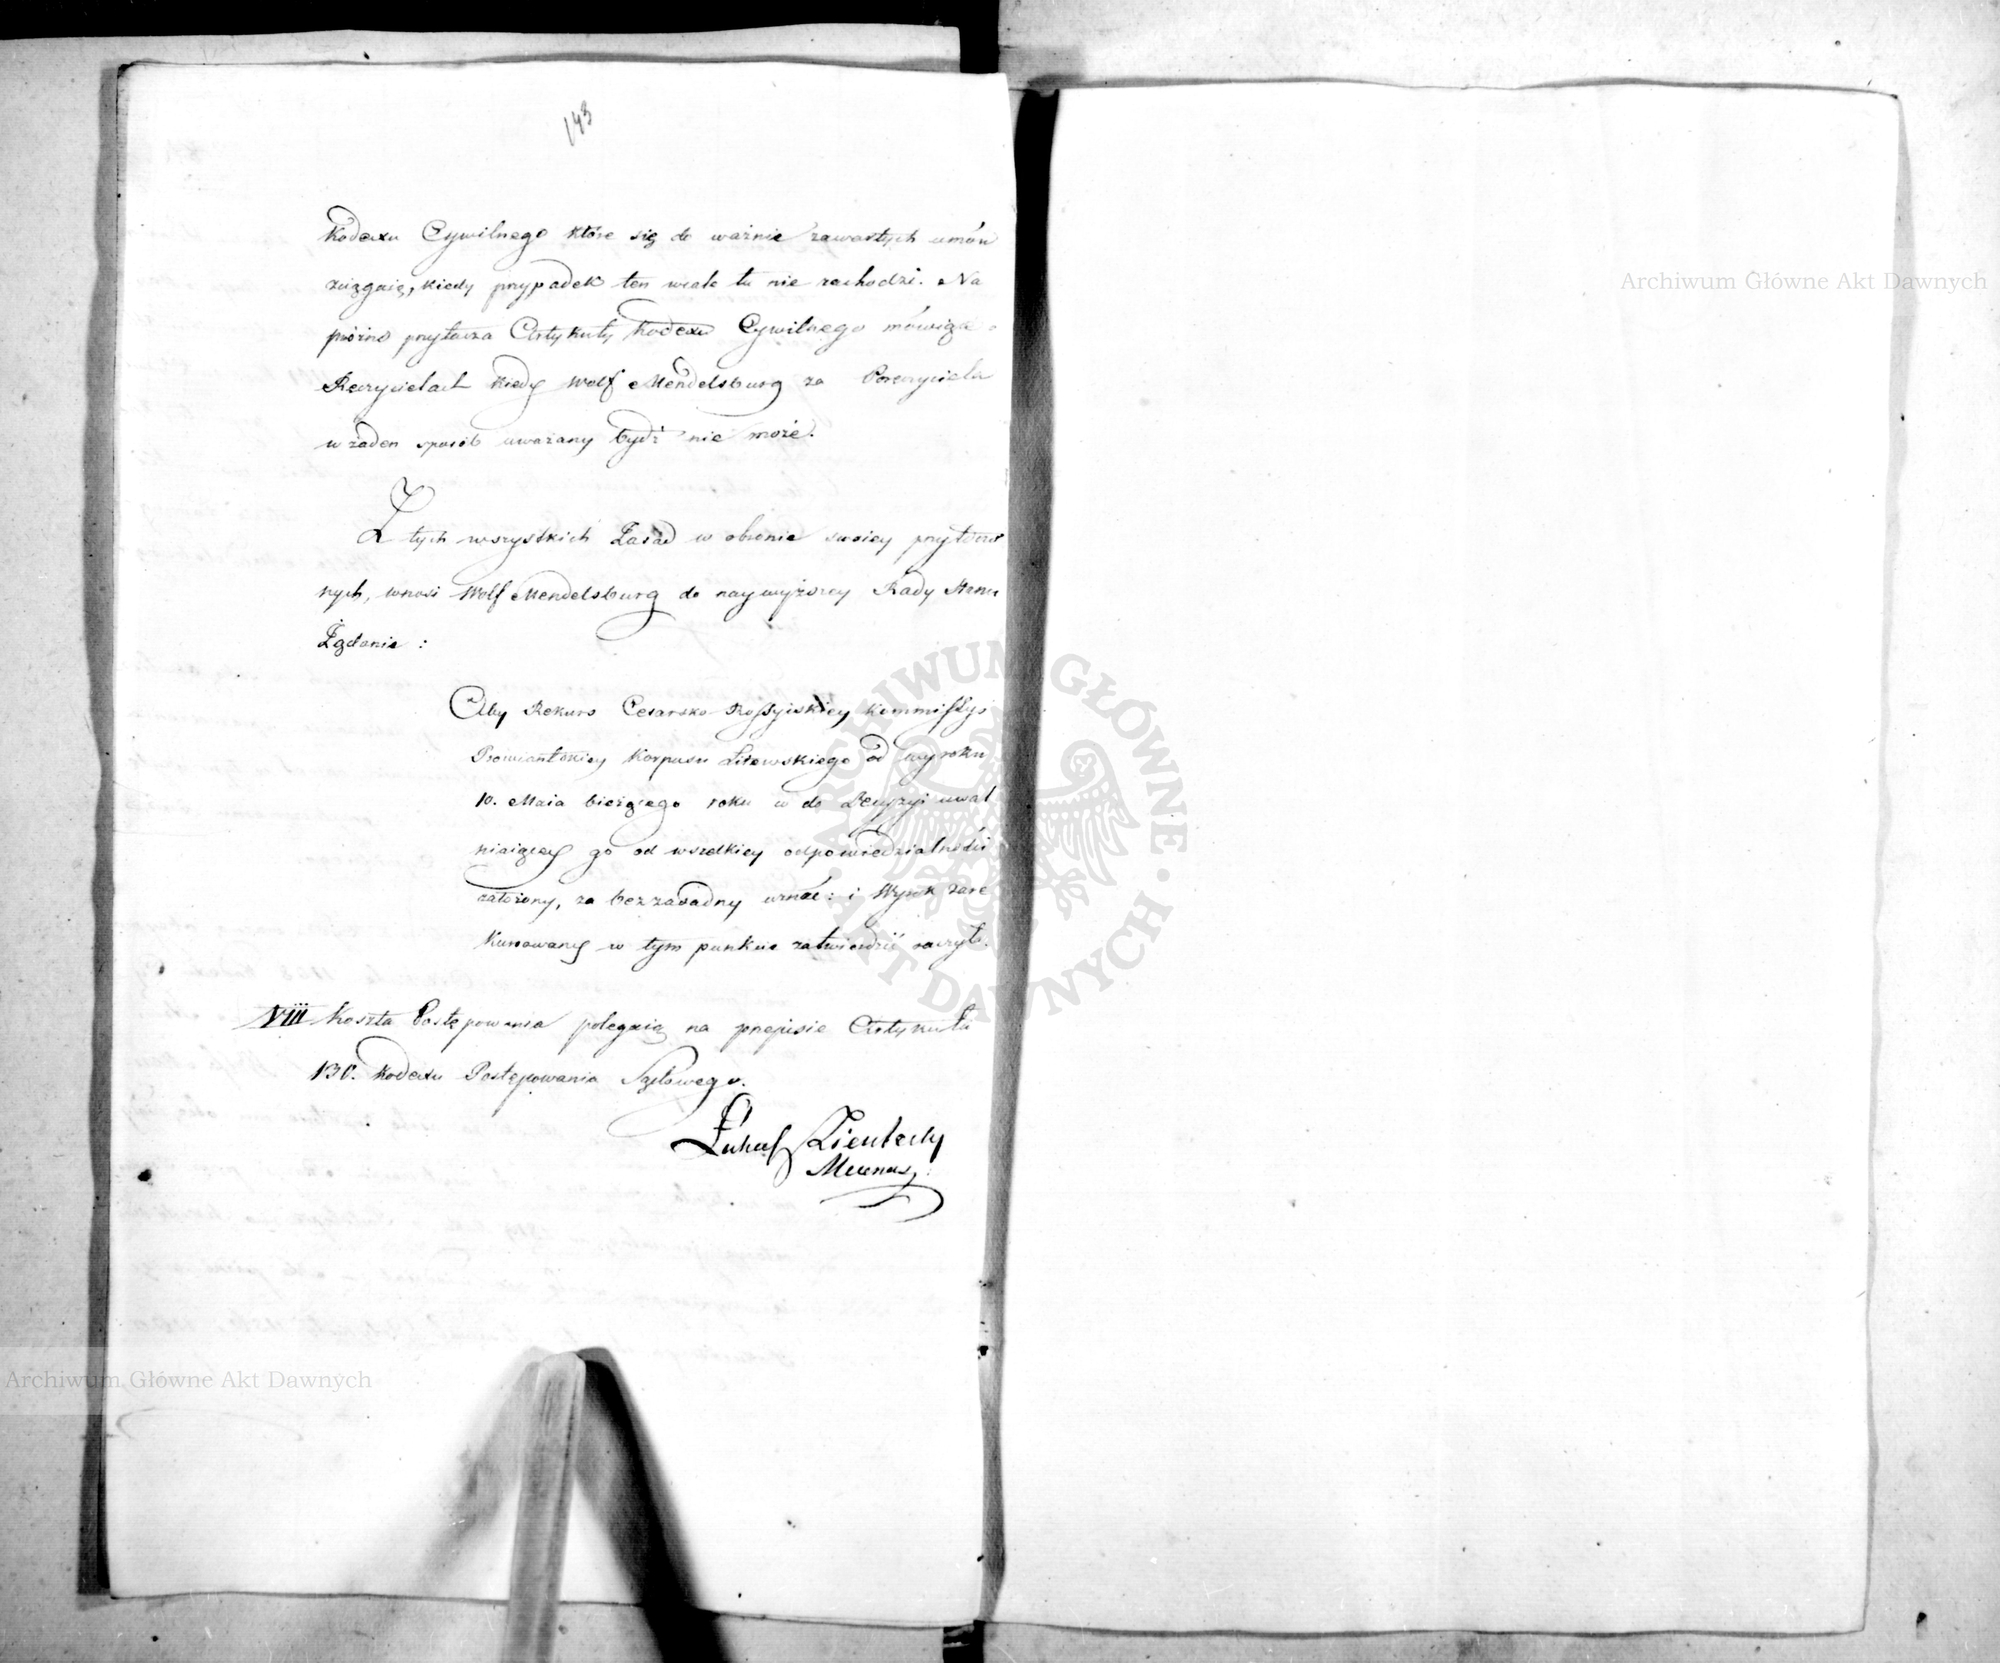 143
Kodexu Cywilnego które się do ważnie zawartych umów
ściągaią, kiedy przypadek ten wcale tu nie zachodzi. Na
próżno przytacza Artykuły Kodexu Cywilnego mówiące o
Ręczycielach kiedy Wolf Mendelsburg za Poręczyciela
w żaden sposób uważany bydź nie może.
Z tych wszystkich Zasad w obronie swoiey przytoczo
nych, wnosi Wolf Mendelsburg do naywyższey Rady Stanu
Żądanie :
Aby Rekurs Cesarsko Rossyiskiey Kommissyi
Prowiantskiey Korpusu Litewskiego od wyroku
10. Maia bieżącego roku w do Decyzyi uwal
niaiącey go od wszelkiey odpowiedzialności
założony, za bezzasadny uznać : i Wyrok zare
kursowany w tym punkcie zatwierdzić raczyła.
VIII Koszta Postępowania polegaią na przepisie Artykułu
130. Kodexu Postępowania Sądowego.
Łukasz Zientecky
Mecenas
Archiwum Główne Akt Dawnych
Archiwum Główne Akt Dawnych
ARCHIWUM GŁÓWNE · AKT DAWNYCH ·